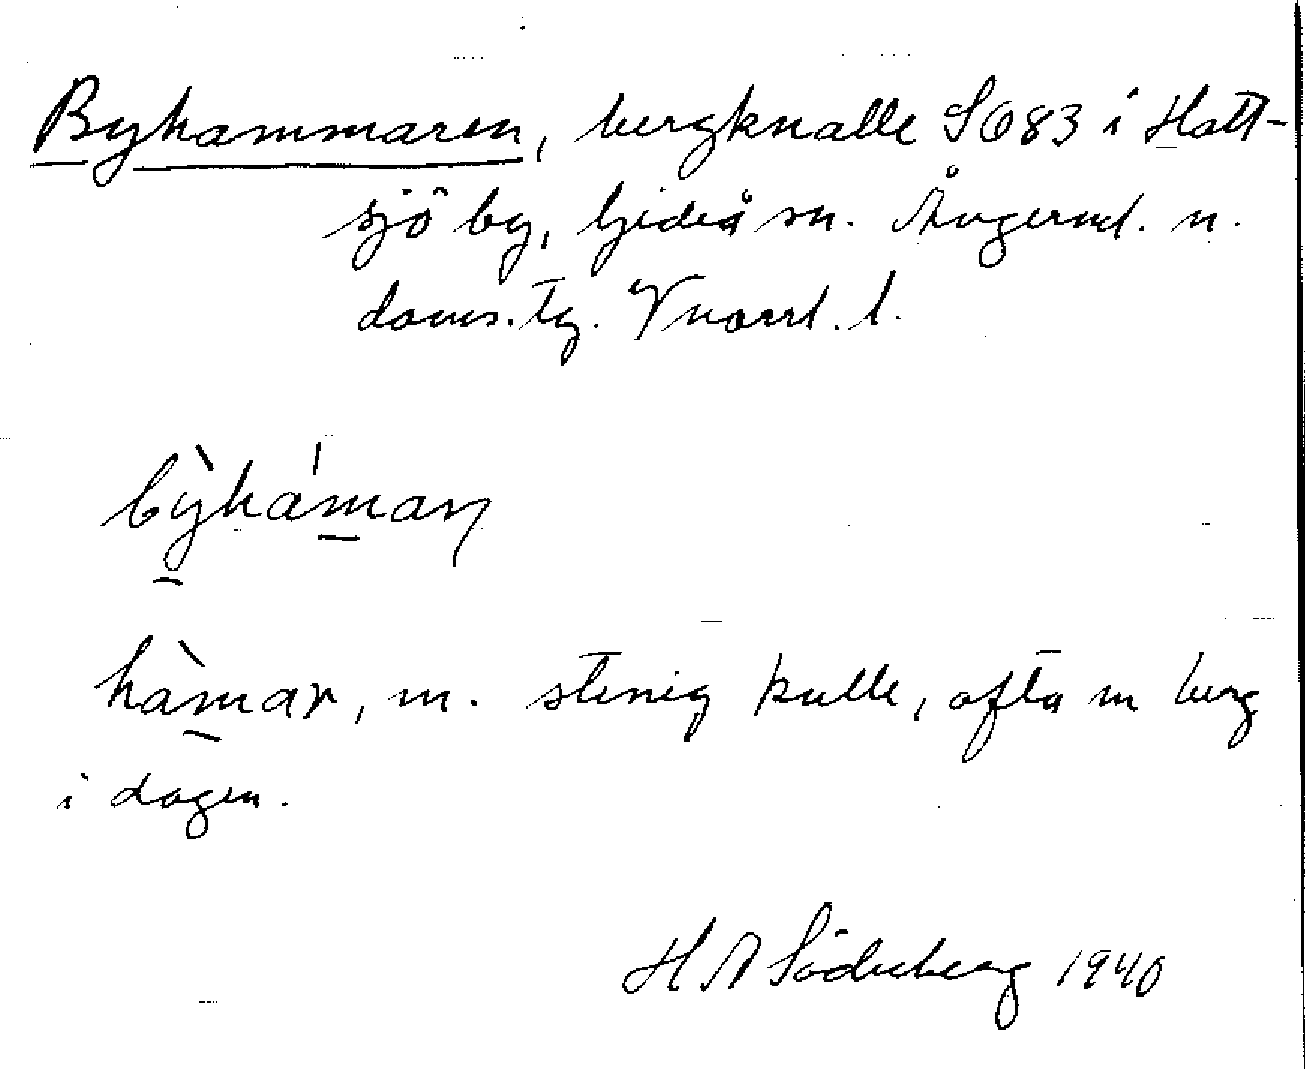 Byhammaren, bergknalle S683 i Hatt-
sjö by, Gideå sn. Ångerml. n.
doms.tg. Vnorrl. l.
bỳhámaṛ
hàmar, m. stenig kulle, ofta m berg
i dagen.
H A Söderberg 1940